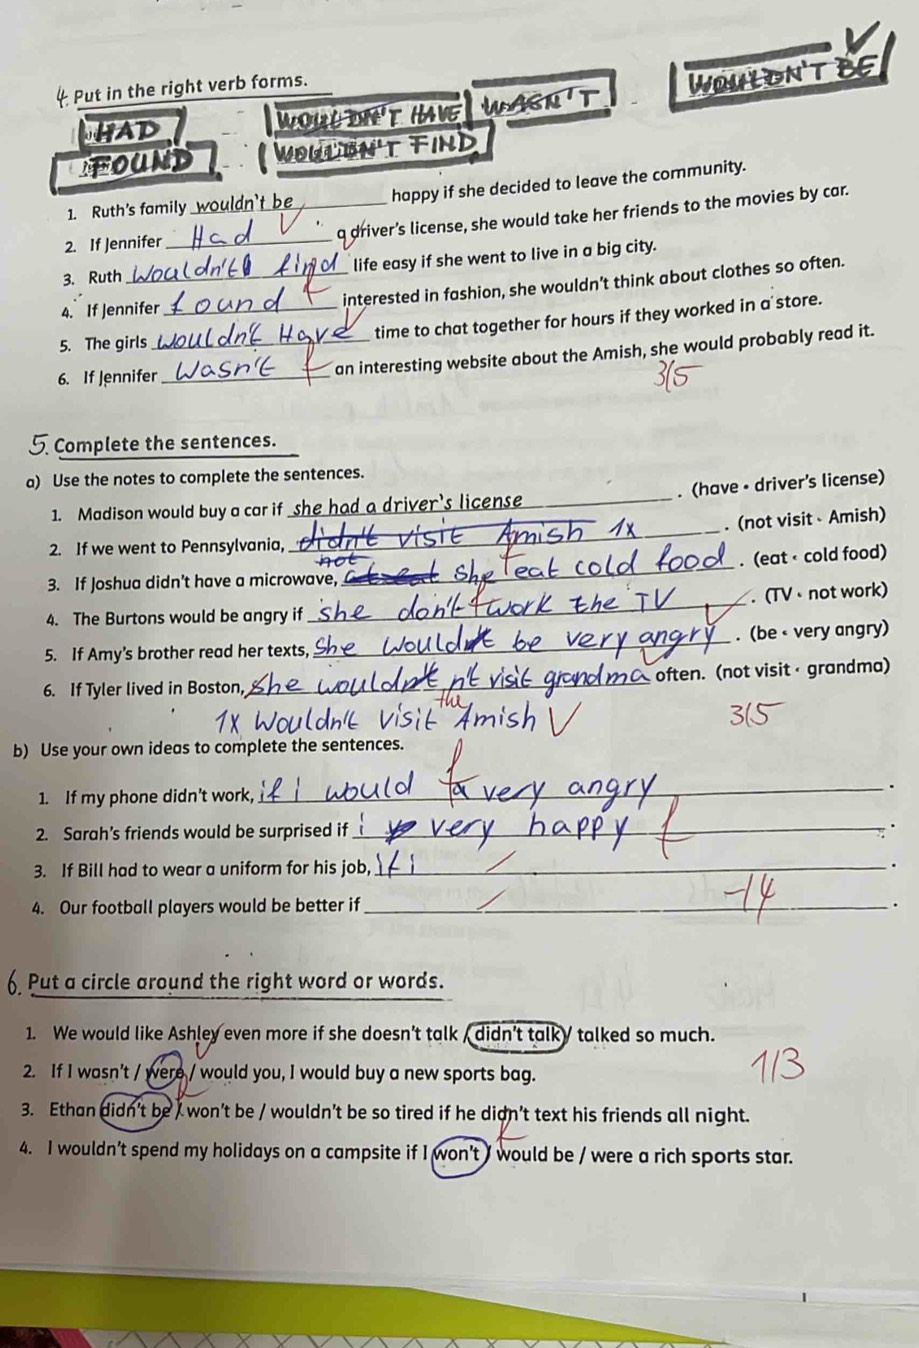 4. Put in the right verb forms.
WOULDN'T BE
HAD
WOULDN'T HAVE
WASN'T
FOUND
WOULDN'T FIND
1. Ruth's family wouldn't be happy if she decided to leave the community.
2. If Jennifer Had a driver's license, she would take her friends to the movies by car.
3. Ruth Wouldn't find life easy if she went to live in a big city.
4. If Jennifer found interested in fashion, she wouldn't think about clothes so often.
5. The girls Wouldn't Have time to chat together for hours if they worked in a store.
6. If Jennifer Wasn't an interesting website about the Amish, she would probably read it.
3/5
5. Complete the sentences.
a) Use the notes to complete the sentences.
1. Madison would buy a car if she had a driver's license. (have • driver's license)
2. If we went to Pennsylvania, didn't visit Amish 1x. (not visit • Amish)
not
3. If Joshua didn't have a microwave, She eat cold food. (eat • cold food)
4. The Burtons would be angry if she don't work the TV. (TV • not work)
5. If Amy's brother read her texts, She Would be very angry. (be • very angry)
6. If Tyler lived in Boston, She would n't visit grandma often. (not visit • grandma)
the
1x Wouldn't visit Amish
3/5
b) Use your own ideas to complete the sentences.
1. If my phone didn't work, if i would a very angry.
2. Sarah's friends would be surprised if i very happy.
3. If Bill had to wear a uniform for his job, if i.
-14
4. Our football players would be better if.
6. Put a circle around the right word or words.
1. We would like Ashley even more if she doesn't talk / didn't talk / talked so much.
1/3
2. If I wasn't / were / would you, I would buy a new sports bag.
3. Ethan didn't be / won't be / wouldn't be so tired if he didn't text his friends all night.
4. I wouldn't spend my holidays on a campsite if I won't / would be / were a rich sports star.